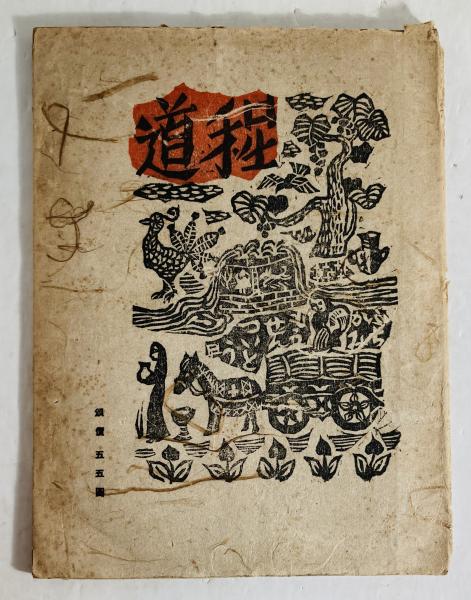 道程
頒價 五五圓